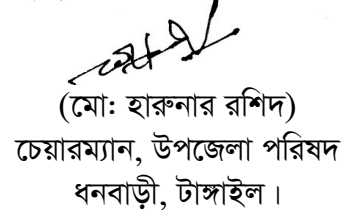 (মো: হারুনার রশিদ)
চেয়ারম্যান, উপজেলা পরিষদ
ধনবাড়ী, টাঙ্গাইল।